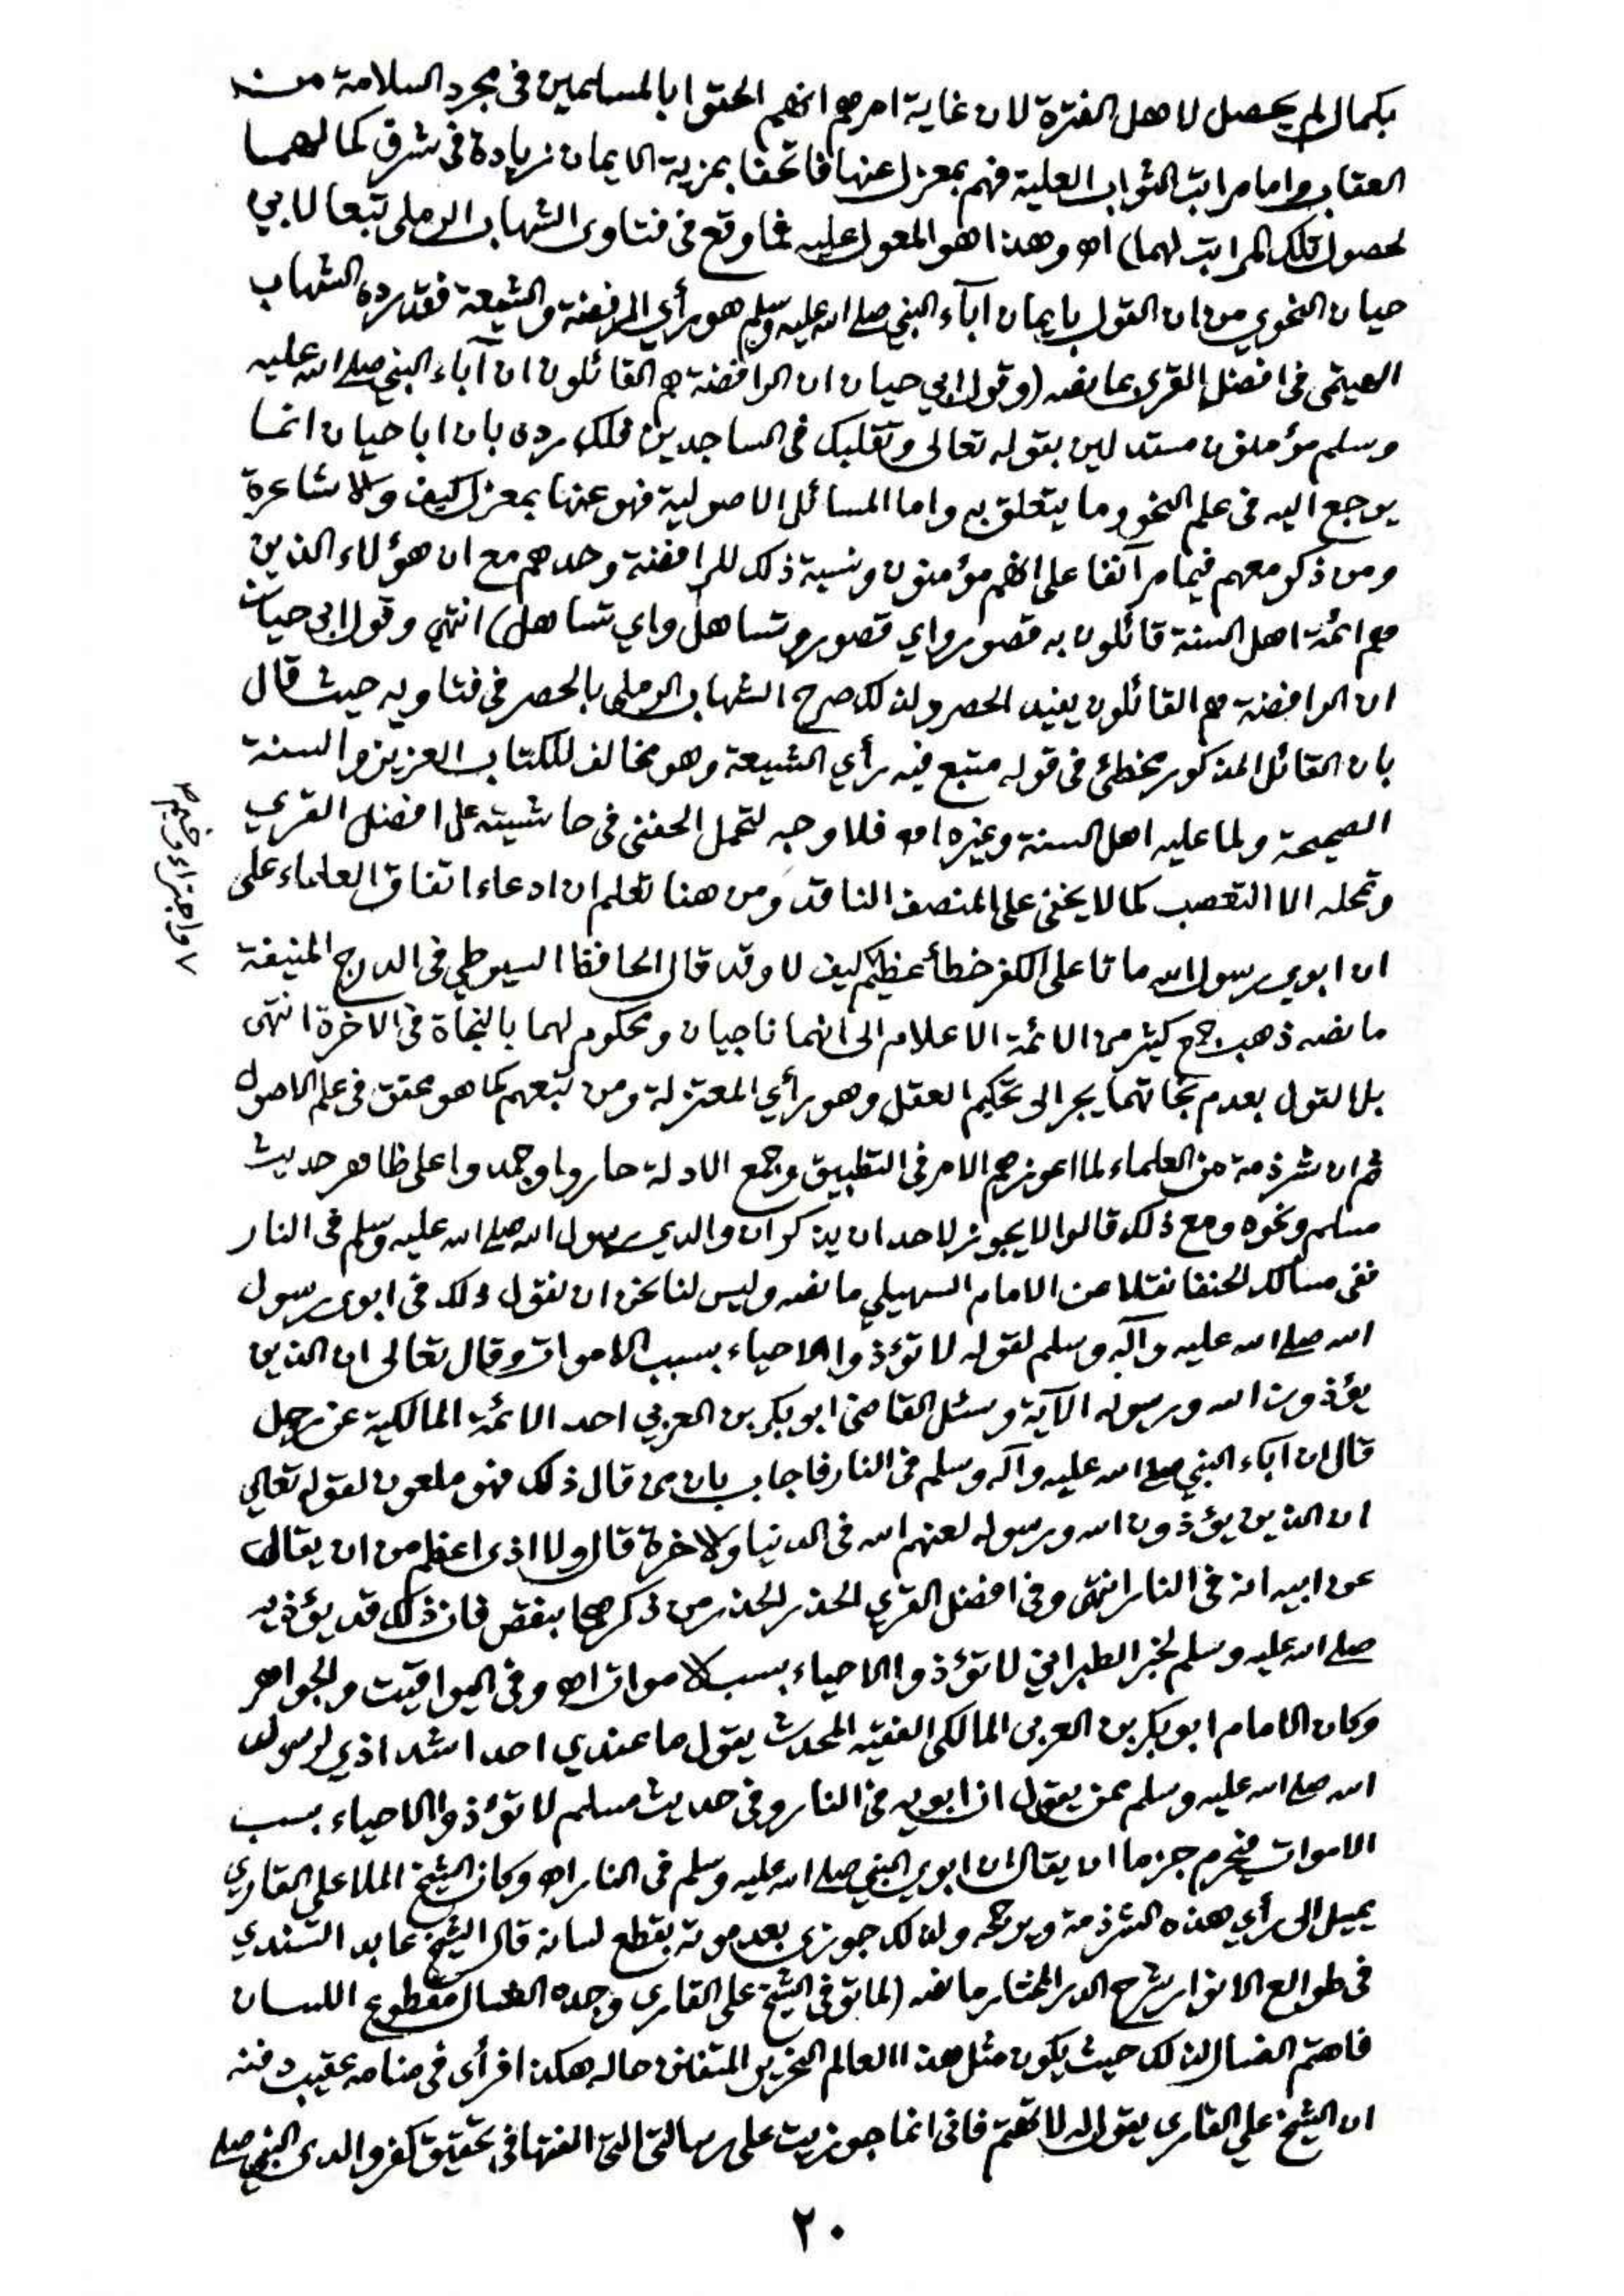 بكمال لم يحصل لاهل الفترة لان غاية امرهم انهم الحقوا بالمسلمين في مجرد السلامة من
العقاب واما مراتب الثواب العلية فهم بمعزل عنها فاتحفا بمزية الايمان زيادة في شرف كمالهما
لحصول تلك المراتب لهما) اهـ وهذا هو المعول عليه فما وقع في فتاوى الشهاب الرملي تبعا لابي
حيان النحوي من ان القول بايمان آباء النبي صلى الله عليه وسلم هو رأي الرفضة والشيعة فقد رده الشهاب
الهيتمي في افضل القرى بما نصه (وقول ابي حيان ان الرافضة هم القائلون ان آباء النبي صلى الله عليه
وسلم مؤمنون مستدلين بقوله تعالى وتقلبك في الساجدين فلك رده بان ابا حيان انما
يرجع اليه في علم النحو وما يتعلق به واما المسائل الاصولية فهو عنها بمعزل كيف والاشاعرة
ومن ذكر معهم فيما مر آنفا على انهم مؤمنون ونسبة ذلك للرافضة وحدهم مع ان هؤلاء الذين
هم ائمة اهل السنة قائلون به قصور واي قصور وتساهل واي تساهل) انتهى وقول ابي حيان
ان الرافضة هم القائلون يفيد الحصر ولذلك صرح الشهاب الرملي بالحصر في فتاويه حيث قال
بان القائل المذكور مخطئ في قوله متبع فيه رأي الشيعة وهو مخالف للكتاب العزيز والسنة
الصحيحة ولما عليه اهل السنة وغيره اهـ فلا وجه لتحمل الحفني في حاشيته على افضل القرى
وتمحله الا التعصب كما لا يخفى على المنصف الناقد ومن هنا تعلم ان ادعاء اتفاق العلماء على
ان ابوي رسول الله ماتا على الكفر خطأ عظيم كيف لا وقد قال الحافظ السيوطي في الدرج المنيفة
ما نصه ذهب جمع كثير من الائمة الاعلام الى انهما ناجيان ومحكوم لهما بالنجاة في الآخرة انتهى
بل القول بعدم نجاتهما يجر الى تحكيم العقل وهو رأي المعتزلة ومن تبعهم كما هو محقق في علم الاصول
ثم ان شرذمة من العلماء لما اعوزهم الامر في التطبيق وجمع الادلة حاروا وجمدوا على ظاهر حديث
مسلم ونحوه ومع ذلك قالوا لا يجوز لاحد ان يذكر ان والدي رسول الله صلى الله عليه وسلم في النار
ففي مسالك الحنفا نقلا عن الامام السهيلي ما نصه وليس لنا نحن ان نقول ذلك في ابوي رسول
الله صلى الله عليه وآله وسلم لقوله لا تؤذوا الاحياء بسبب الاموات وقال تعالى ان الذين
يؤذون الله ورسوله الآية وسئل القاضي ابو بكر بن العربي احد الائمة المالكية عن رجل
قال ان آباء النبي صلى الله عليه وآله وسلم في النار فاجاب بان من قال ذلك فهو ملعون لقوله تعالى
ان الذين يؤذون الله ورسوله لعنهم الله في الدنيا والاخرة قال ولا اذى اعظم من ان يقال
عن ابيه انه في النار انتهى وفي افضل القرى الحذر الحذر من ذكرهما بنقص فان ذلك قد يؤذيه
صلى الله عليه وسلم لخبر الطبراني لا تؤذوا الاحياء بسبب الاموات اهـ وفي اليواقيت والجواهر
وكان الامام ابو بكر بن العربي المالكي الفقيه المحدث يقول ما عندي احد اشد اذى لرسول
الله صلى الله عليه وسلم ممن يقول ان ابويه في النار وفي حديث مسلم لا تؤذوا الاحياء بسبب
الاموات فيحرم جزما ان يقال ان ابوي النبي صلى الله عليه وسلم في النار اهـ وكان الشيخ الملا علي القاري
يميل الى رأي هذه الشرذمة ويرجحه ولذلك جوزي بعد موته بقطع لسانه قال الشيخ عابد السندي
في طوالع الانوار شرح الدر المختار ما نصه (لما توفي الشيخ علي القاري وجده الغسال مقطوع اللسان
فاهتم الغسال لذلك حيث يكون مثل هذا العالم النحرير المتفنن حاله هكذا فرأى في منامه عقيب دفنه
ان الشيخ علي القاري يقول له لا تهتم فاني انما جوزيت على رسالتي التي الفتها في تحقيق كفر والدي النبي صلى
٢٠